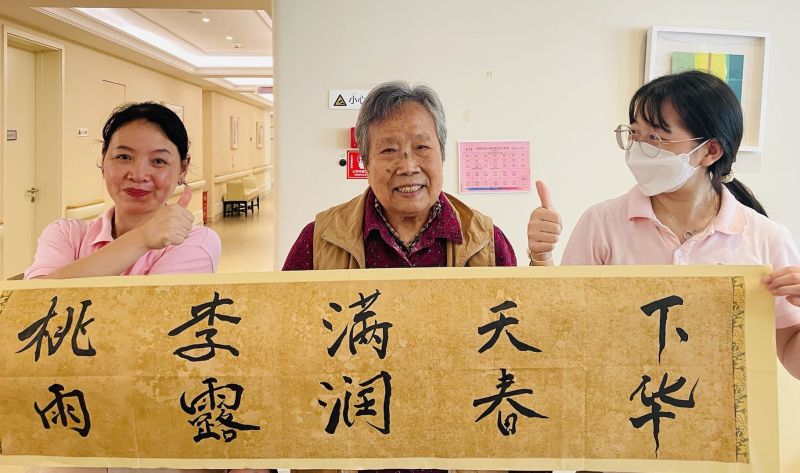 桃李满天下
雨露润春华
小心